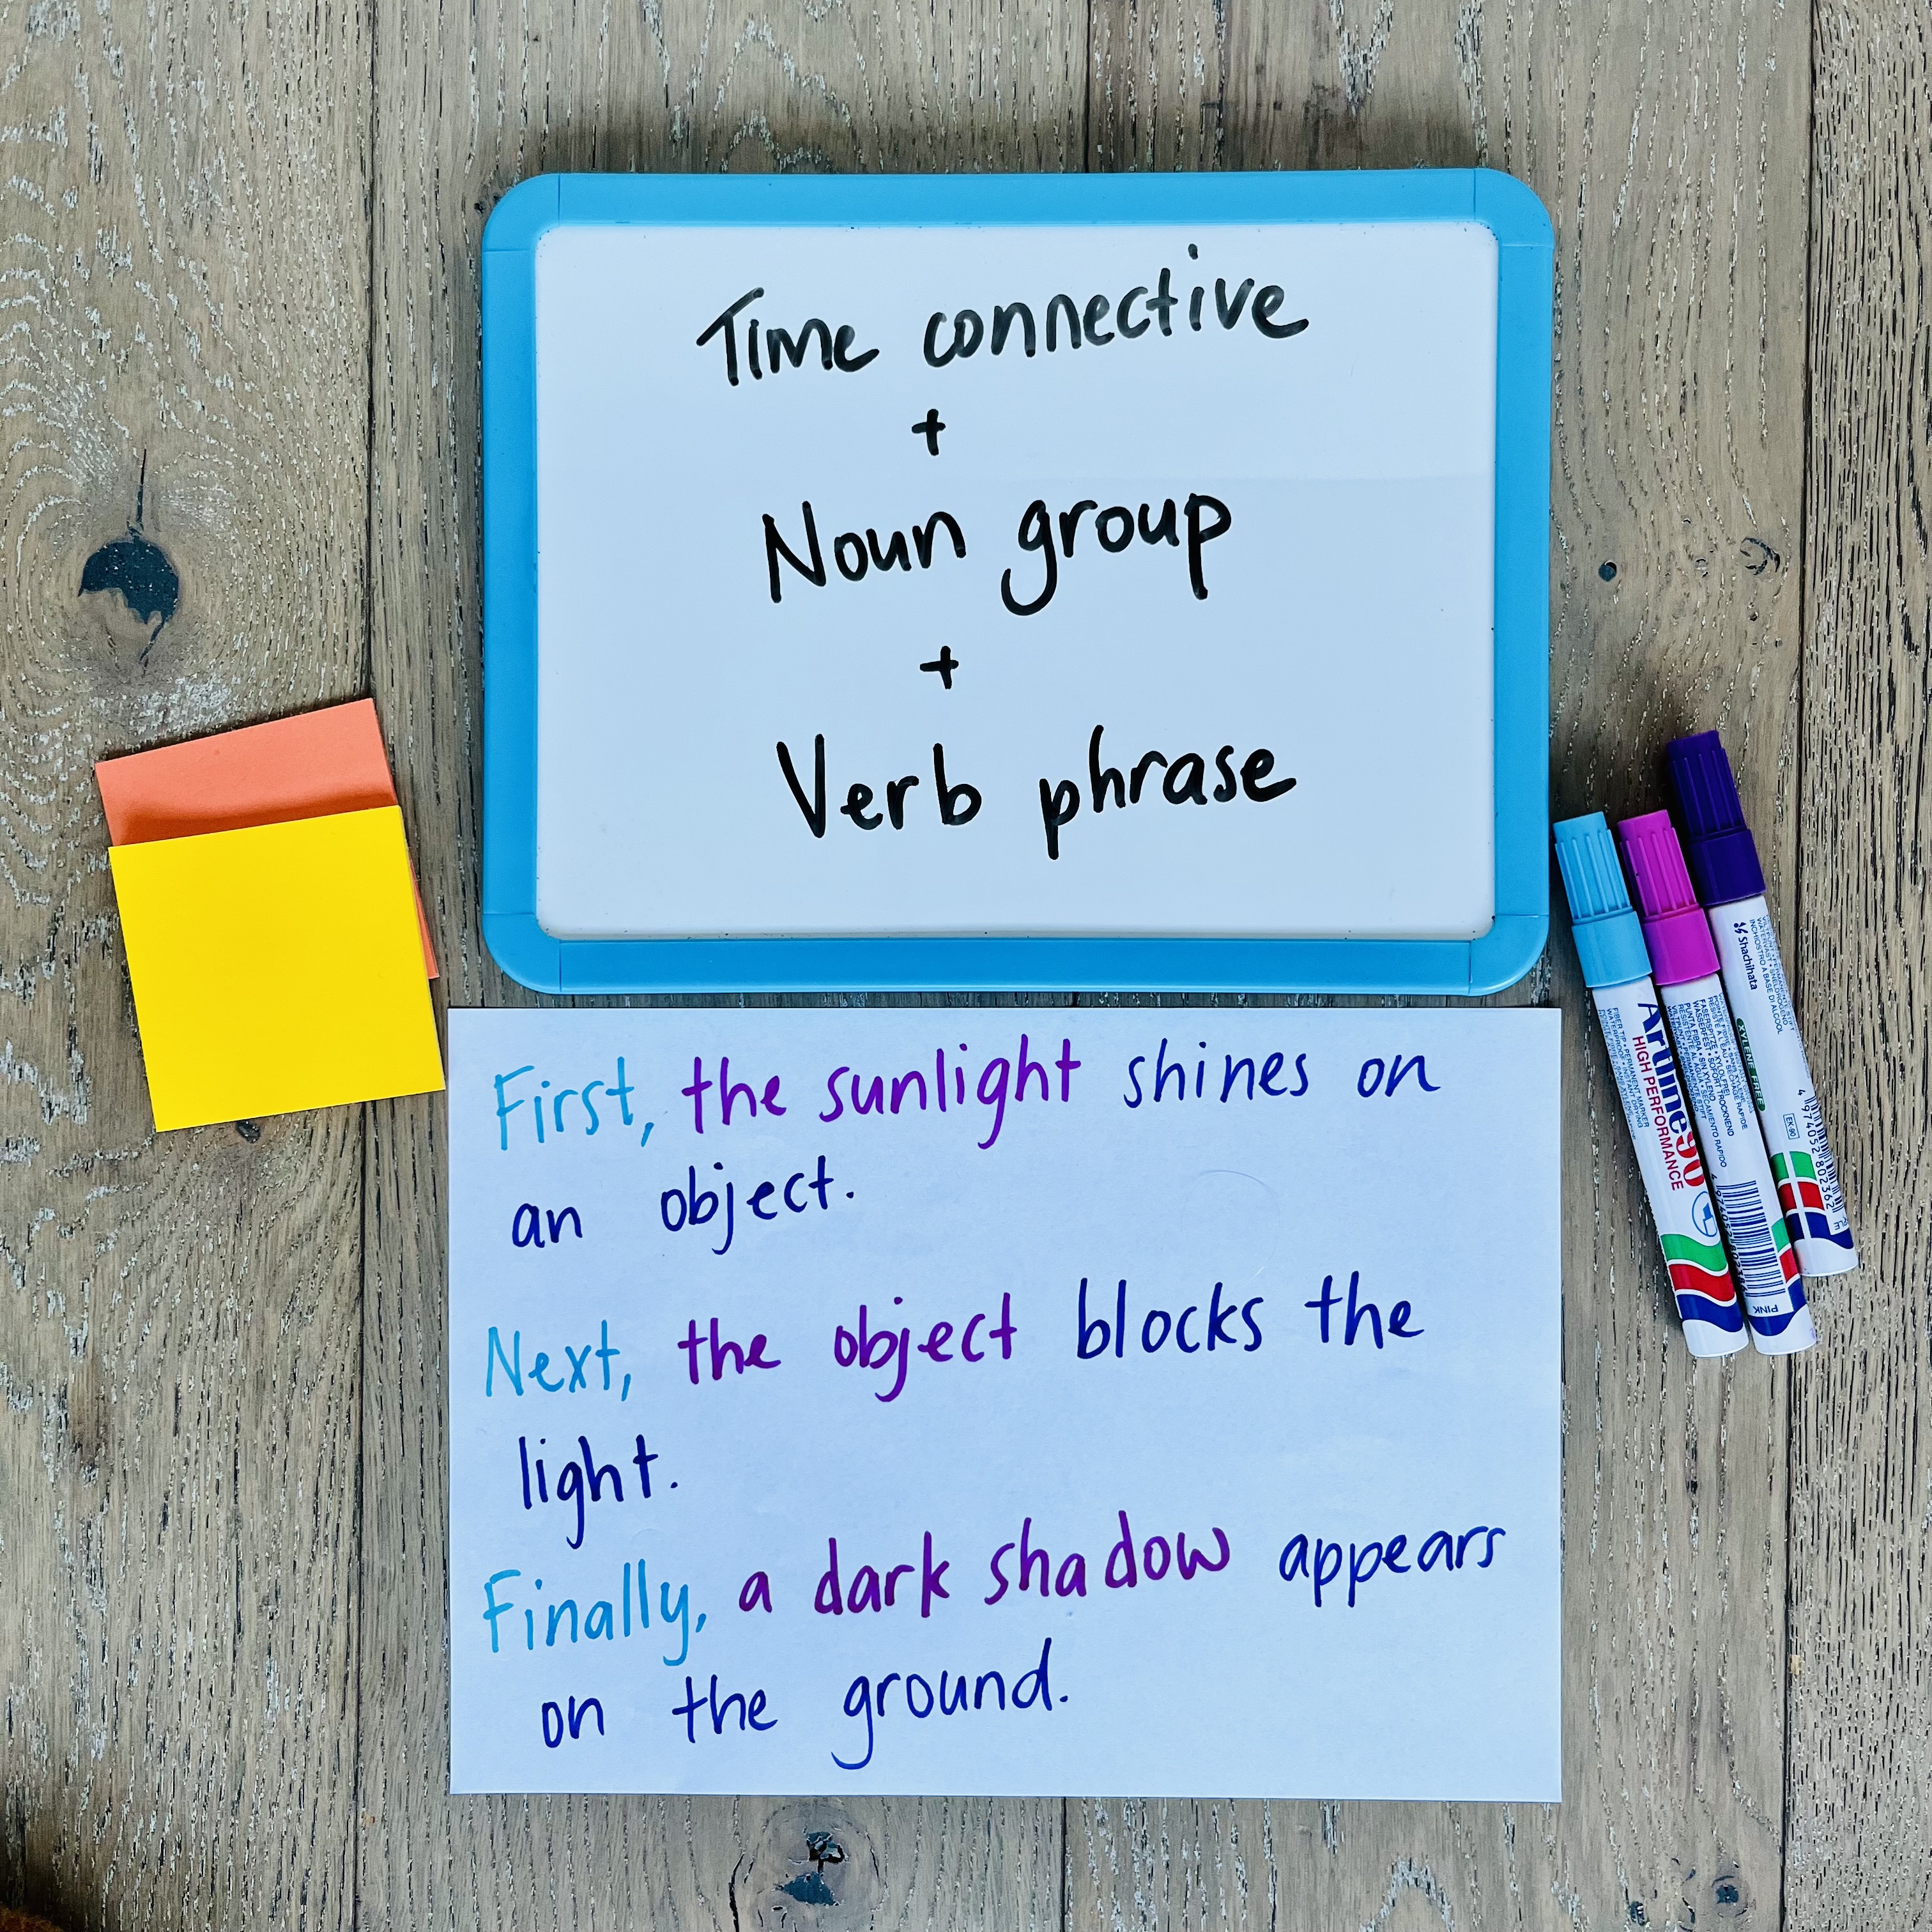 Time connective
+
Noun group
+
Verb phrase
First, the sunlight shines on
an object.
Next, the object blocks the
light.
Finally, a dark shadow appears
on the ground.
Artline 90
HIGH PERFORMANCE
Shachihata
XYLENE FREE
EK-90
PINK